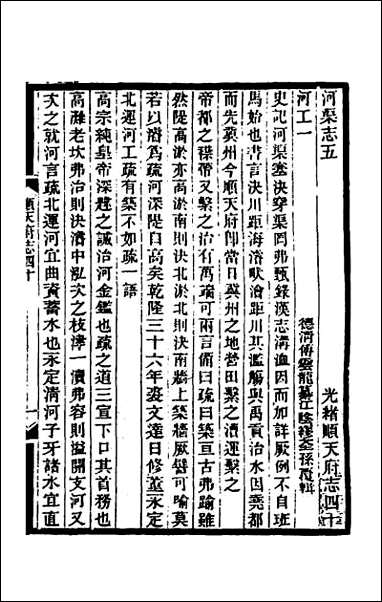 光緒順天府志四十
河渠志五
德清傅雲龍纂江陰繆荃孫覆輯
河工一
史記河渠塞決穿渠罔弗甄錄漢志溝洫因而加詳厥例不自班
馬始也書言決川距海濬畎澮距川其濫觴與禹貢治水因堯都
而先冀州今順天府卽當日冀州之地營田之漕運繫之
帝都之碟帝又繫之治有萬端可兩言備曰疏曰築亙古弗踰雖
然隄高淤亦高淤南則決北淤北則決南牆上築牆厥譬可喻莫
若以濬爲疏河深隄自高矣乾隆三十六年裘文達日修葺永定
北運河工疏有築不如疏一語
高宗純皇帝深韙之誠治河金鑑也疏之道三宣下口其首務也
高灘老坎弗治則決濟中泓次之枝溥一瀆弗容則溢闢支河又
次之就河言疏北運河宜曲資蓄水也永定淸河子牙諸水宜直
順天府志四十
一